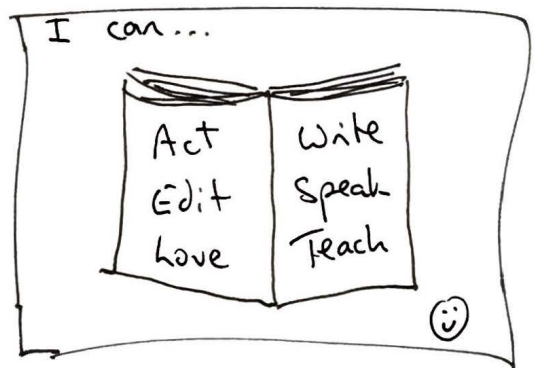 I can...
Act
Edit
Love
Write
Speak
Teach